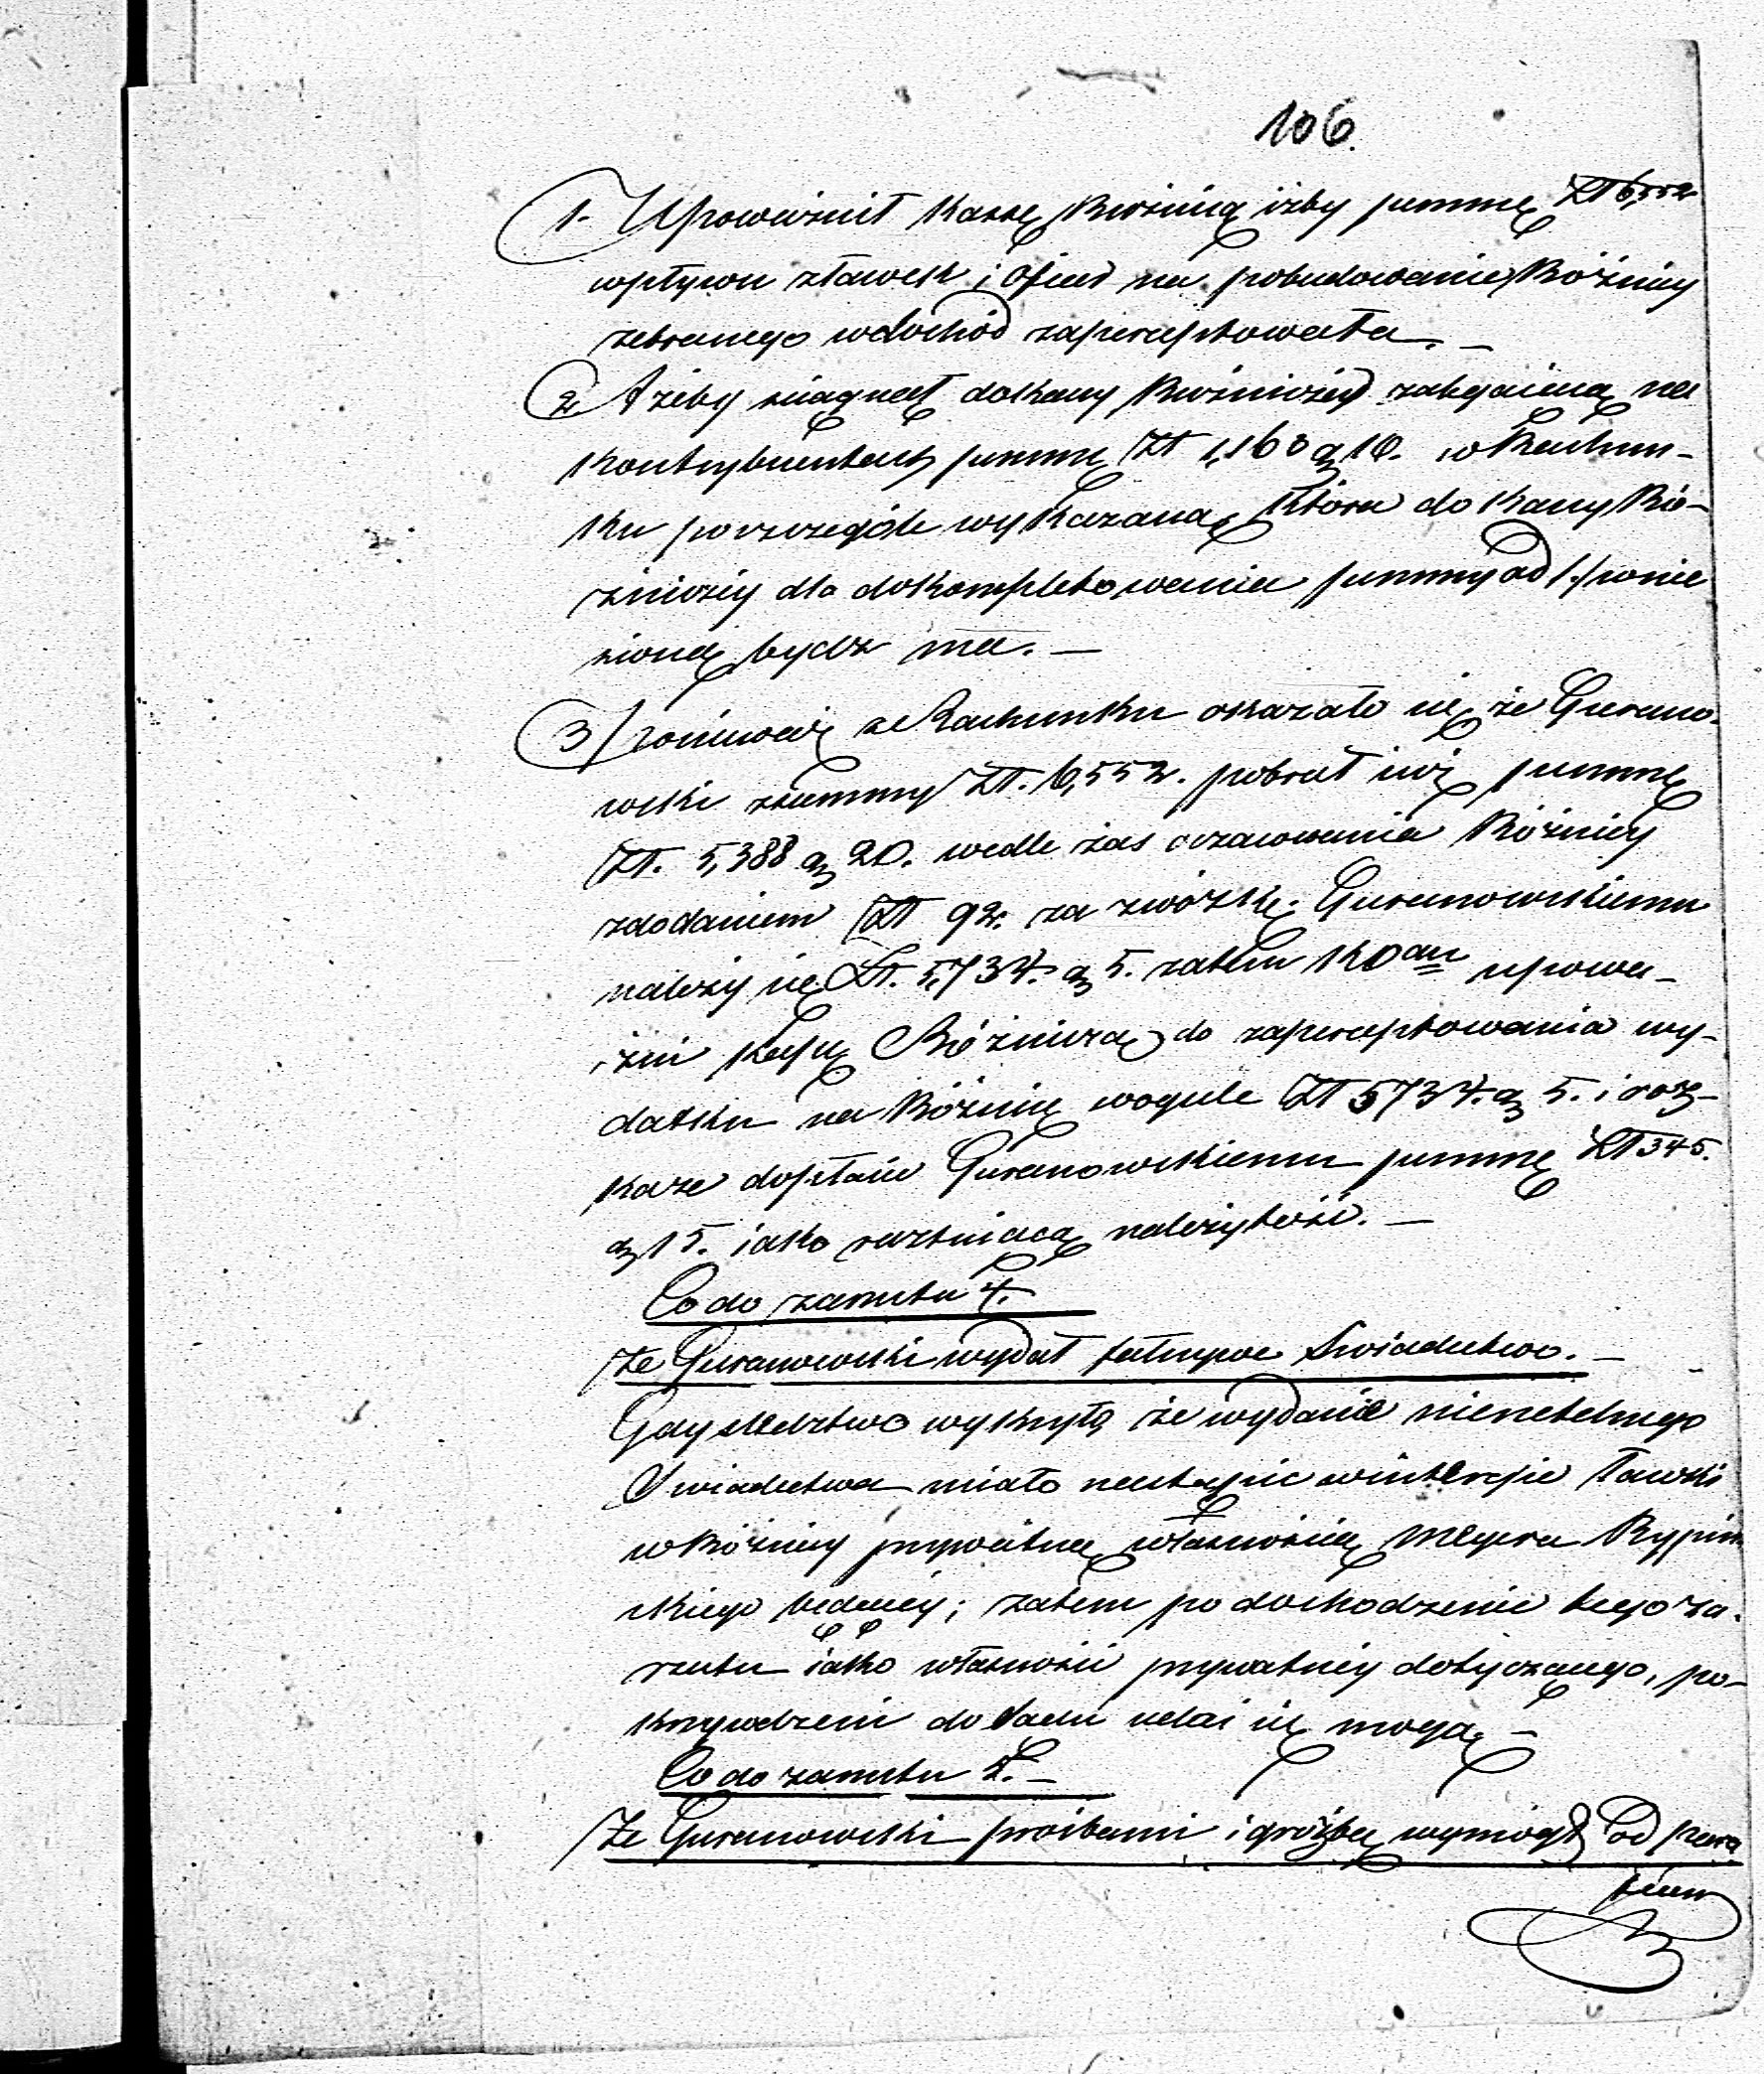 106.
1. Upoważnił Kassę Bużniczą iżby summę Zł 6,552
wpływu z ławek i ofiar na pobudowanie Bóżnicy
zebranego w dochód zaperceptowała. —
2 Ażeby ściągnął do kassy Bużniczéy zaległą na
kontrybuentach summę Zł 1,163 g 10. w Rachun-
ku poszczególe wykazaną, która do kassy Bó-
żniczéy dla dokompletowania summy ad 1./ wnie
sioną bydz ma. —
3/ ponieważ z Rachunku okazało się że Gurano-
wski z summy Zł. 6,552. pobrał już summę
Zł. 5,388 g 20. wedle zaś oszacowania Bóżnicy
z dodaniem Zł 92. za zwózkę Guranowskiemu
należy się Zł. 5,734. g 5. zatem K D au upowa-
żni Kassę Bóżniczą do zaperceptowania wy-
datku na Bóżnicę wogule Zł 5734. g 5. i roz-
każe dopłacić Guranowskiemu summę Zł 345.
g 15. iako różniącą należytość. —
Co do zarzutu 4.
Że Guranowski wydał fałszywe Swiadectwo. —
Gdy sledztwo wykryło, że wydanie nierzetelnego
Swiadectwa miało nastąpić w interesie ławki
w Bóżnicy prywatną własnością Meyera Rypiń-
skiego będącéy; zatem po dochodzenie tego za-
rzutu iako własności prywatnéy dotyczącego, po-
krzywdzeni do Sądu udać się mogą —
Co do zarzutu 5. —
Że Guranowski proźbami i groźbą wymógł od para
fian